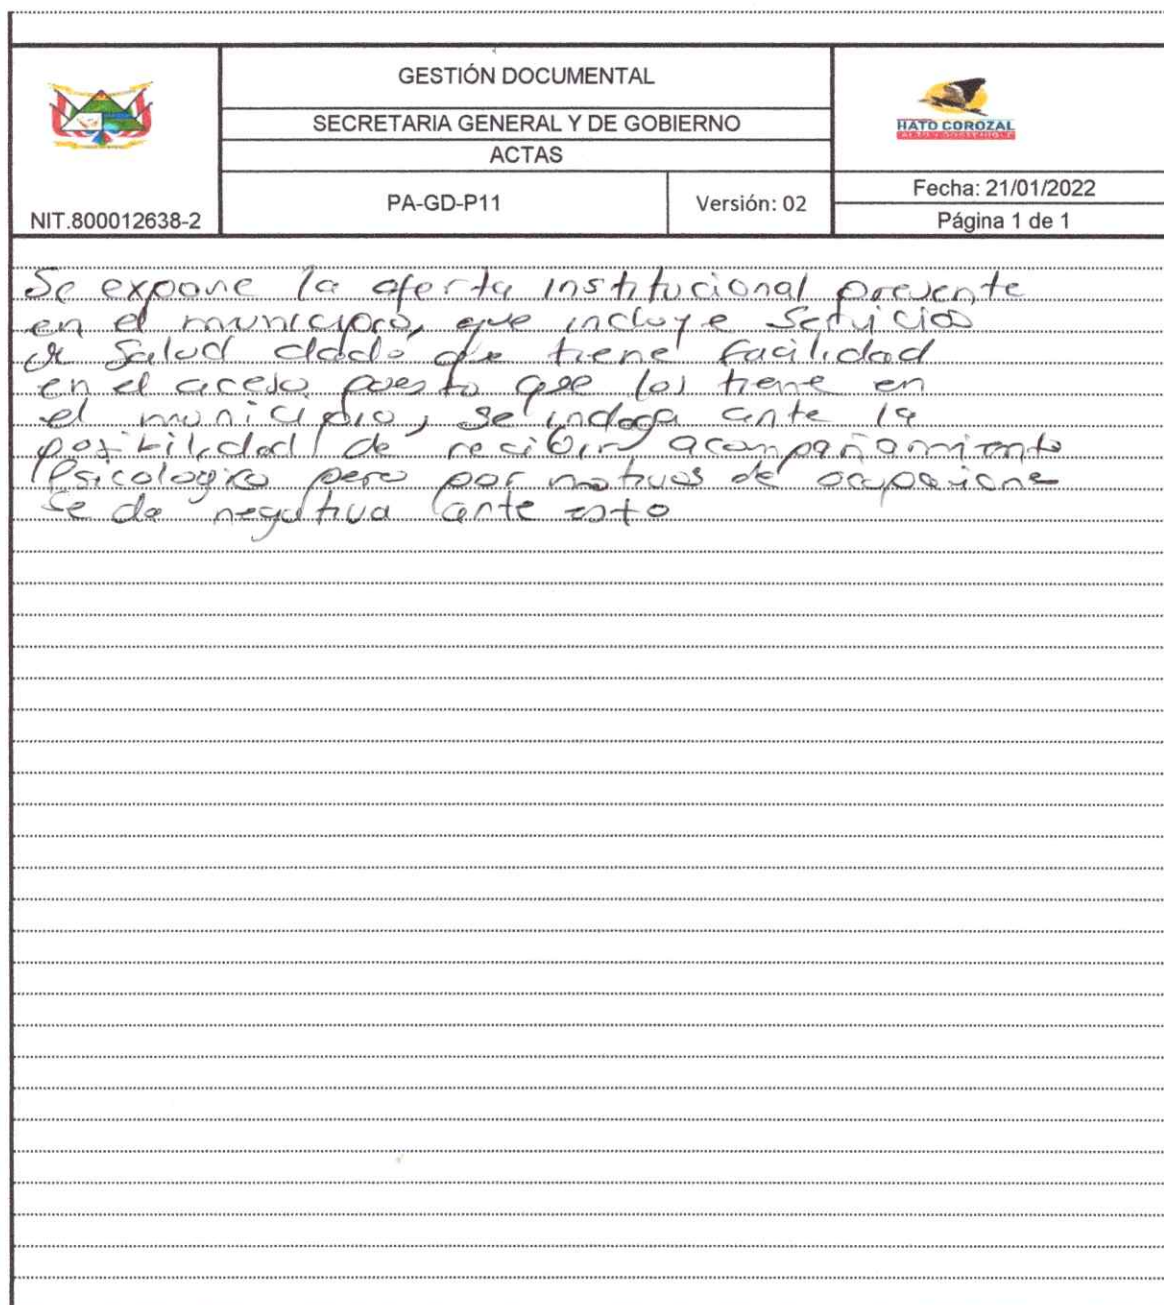 GESTIÓN DOCUMENTAL
SECRETARIA GENERAL Y DE GOBIERNO
ACTAS
NIT.800012638-2
PA-GD-P11
Versión: 02
HATO COROZAL
Fecha: 21/01/2022
Página 1 de 1
Se expone la oferta institucional presente
en el municipio, que incluye Servicios
de Salud dado que tiene facilidad
en el acceso puesto que los tiene en
el municipio, se indaga ante la
posibilidad de recibir acompañamiento
Psicologico pero por motivos de ocupacione
se da negativa ante esto